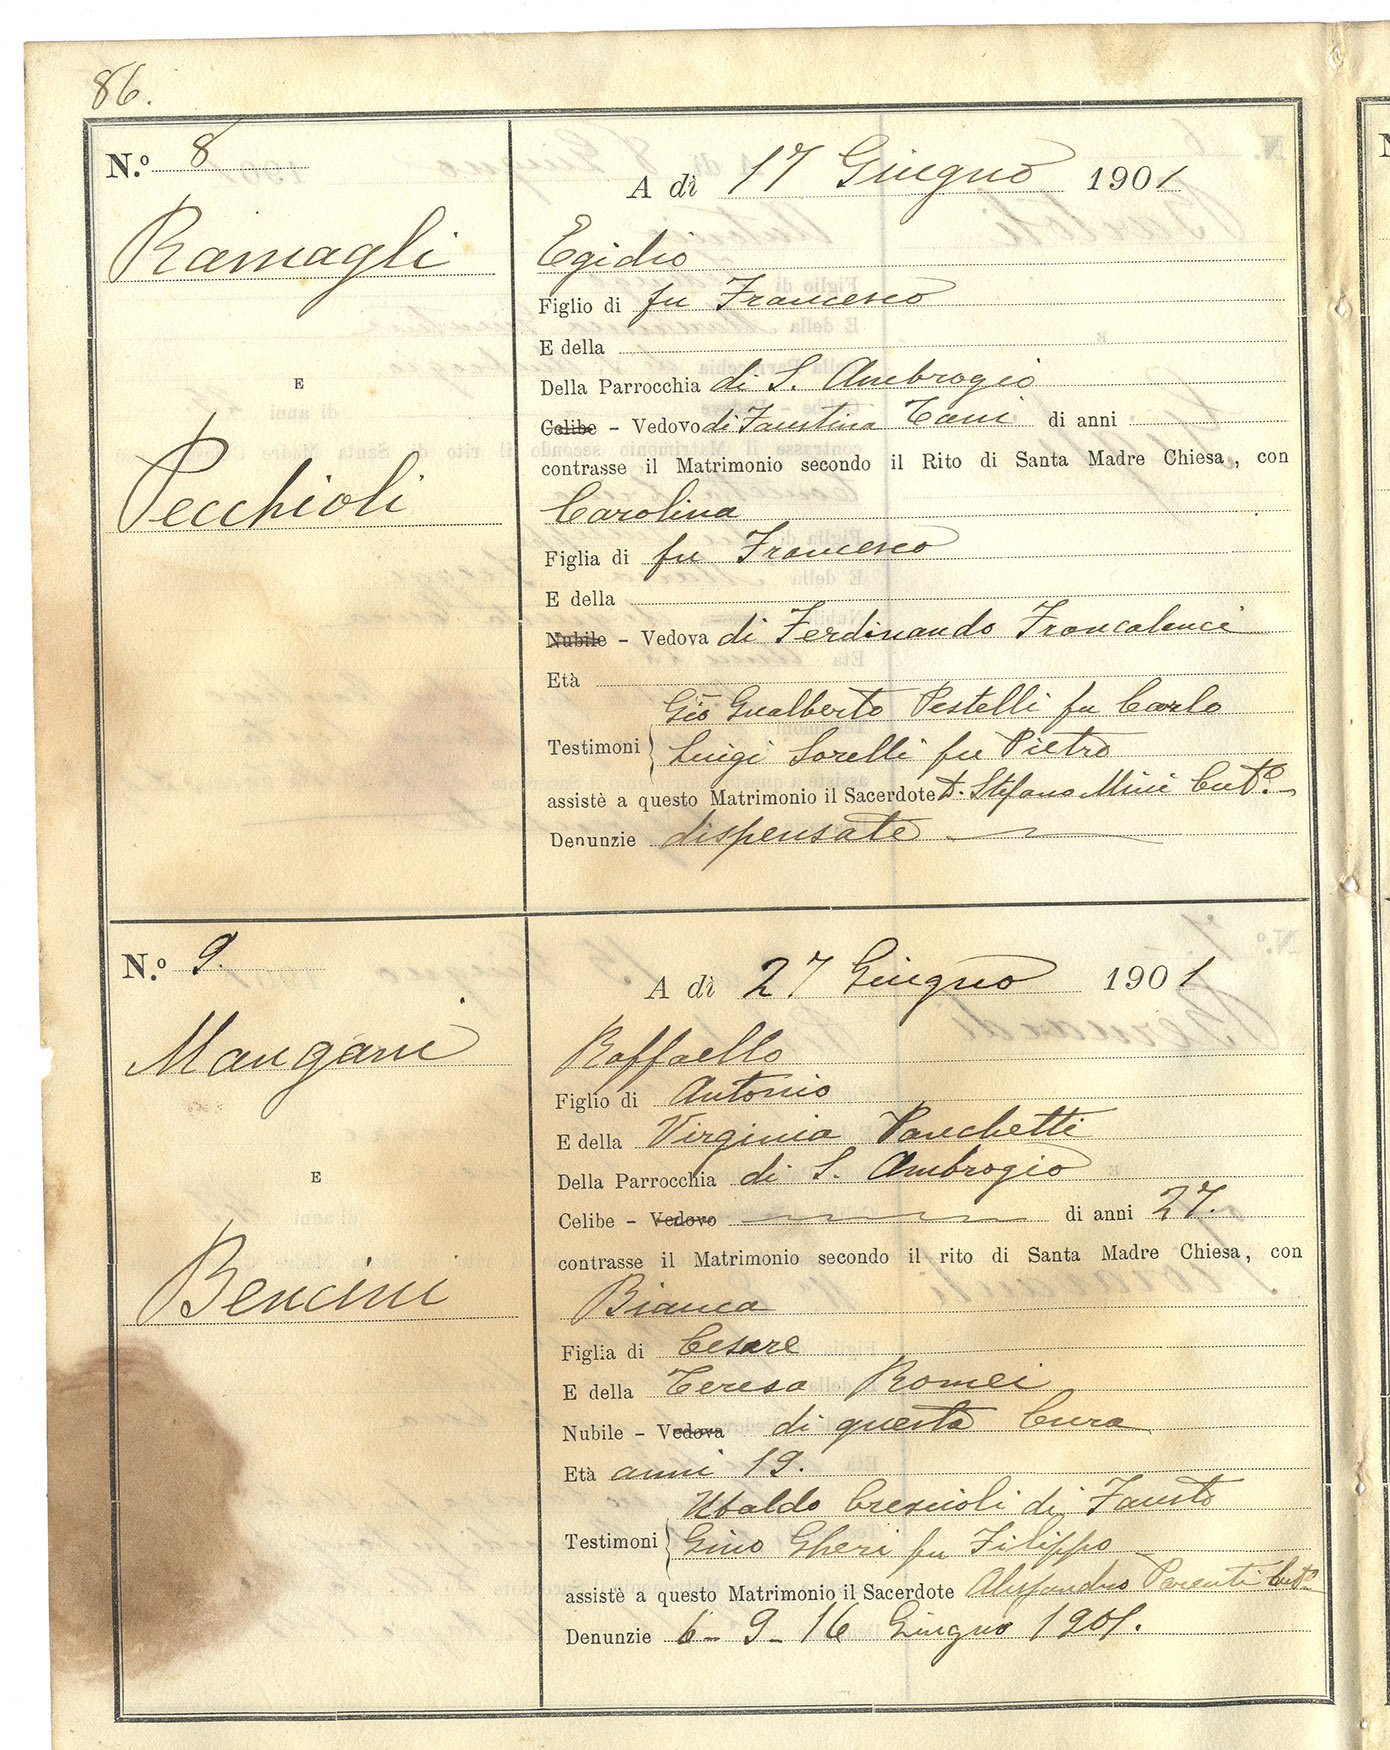 86.
N.º 8
A dì 17 Giugno 1901
Ramagli
Egidio
Figlio di fu Francesco
E della
Della Parrocchia di S. Ambrogio
E
Celibe - Vedovo di Faustina Tani di anni
contrasse il Matrimonio secondo il Rito di Santa Madre Chiesa, con
Pecchioli
Carolina
Figlia di fu Francesco
E della
Nubile - Vedova di Ferdinando Francalanci
Età
Gio Gualberto Pestelli fu Carlo
Testimoni Luigi Sorelli fu Pietro
assistè a questo Matrimonio il Sacerdote D. Stefano Mini Curº.
Denunzie dispensate
N.º 9.
A dì 27 Giugno 1901
Mangani
Raffaello
Figlio di Antonio
E della Virginia Panchetti
Della Parrocchia di S. Ambrogio
E
Celibe - Vedovo di anni 27.
contrasse il Matrimonio secondo il rito di Santa Madre Chiesa, con
Bencini
Bianca
Figlia di Cesare
E della Teresa Romei
Nubile - Vedova di questa Cura
Età anni 19.
Ubaldo Crescioli di Fausto
Testimoni Gino Gheri fu Filippo
assistè a questo Matrimonio il Sacerdote Alessandro Parenti
Denunzie 6 - 9 - 16 Giugno 1901.